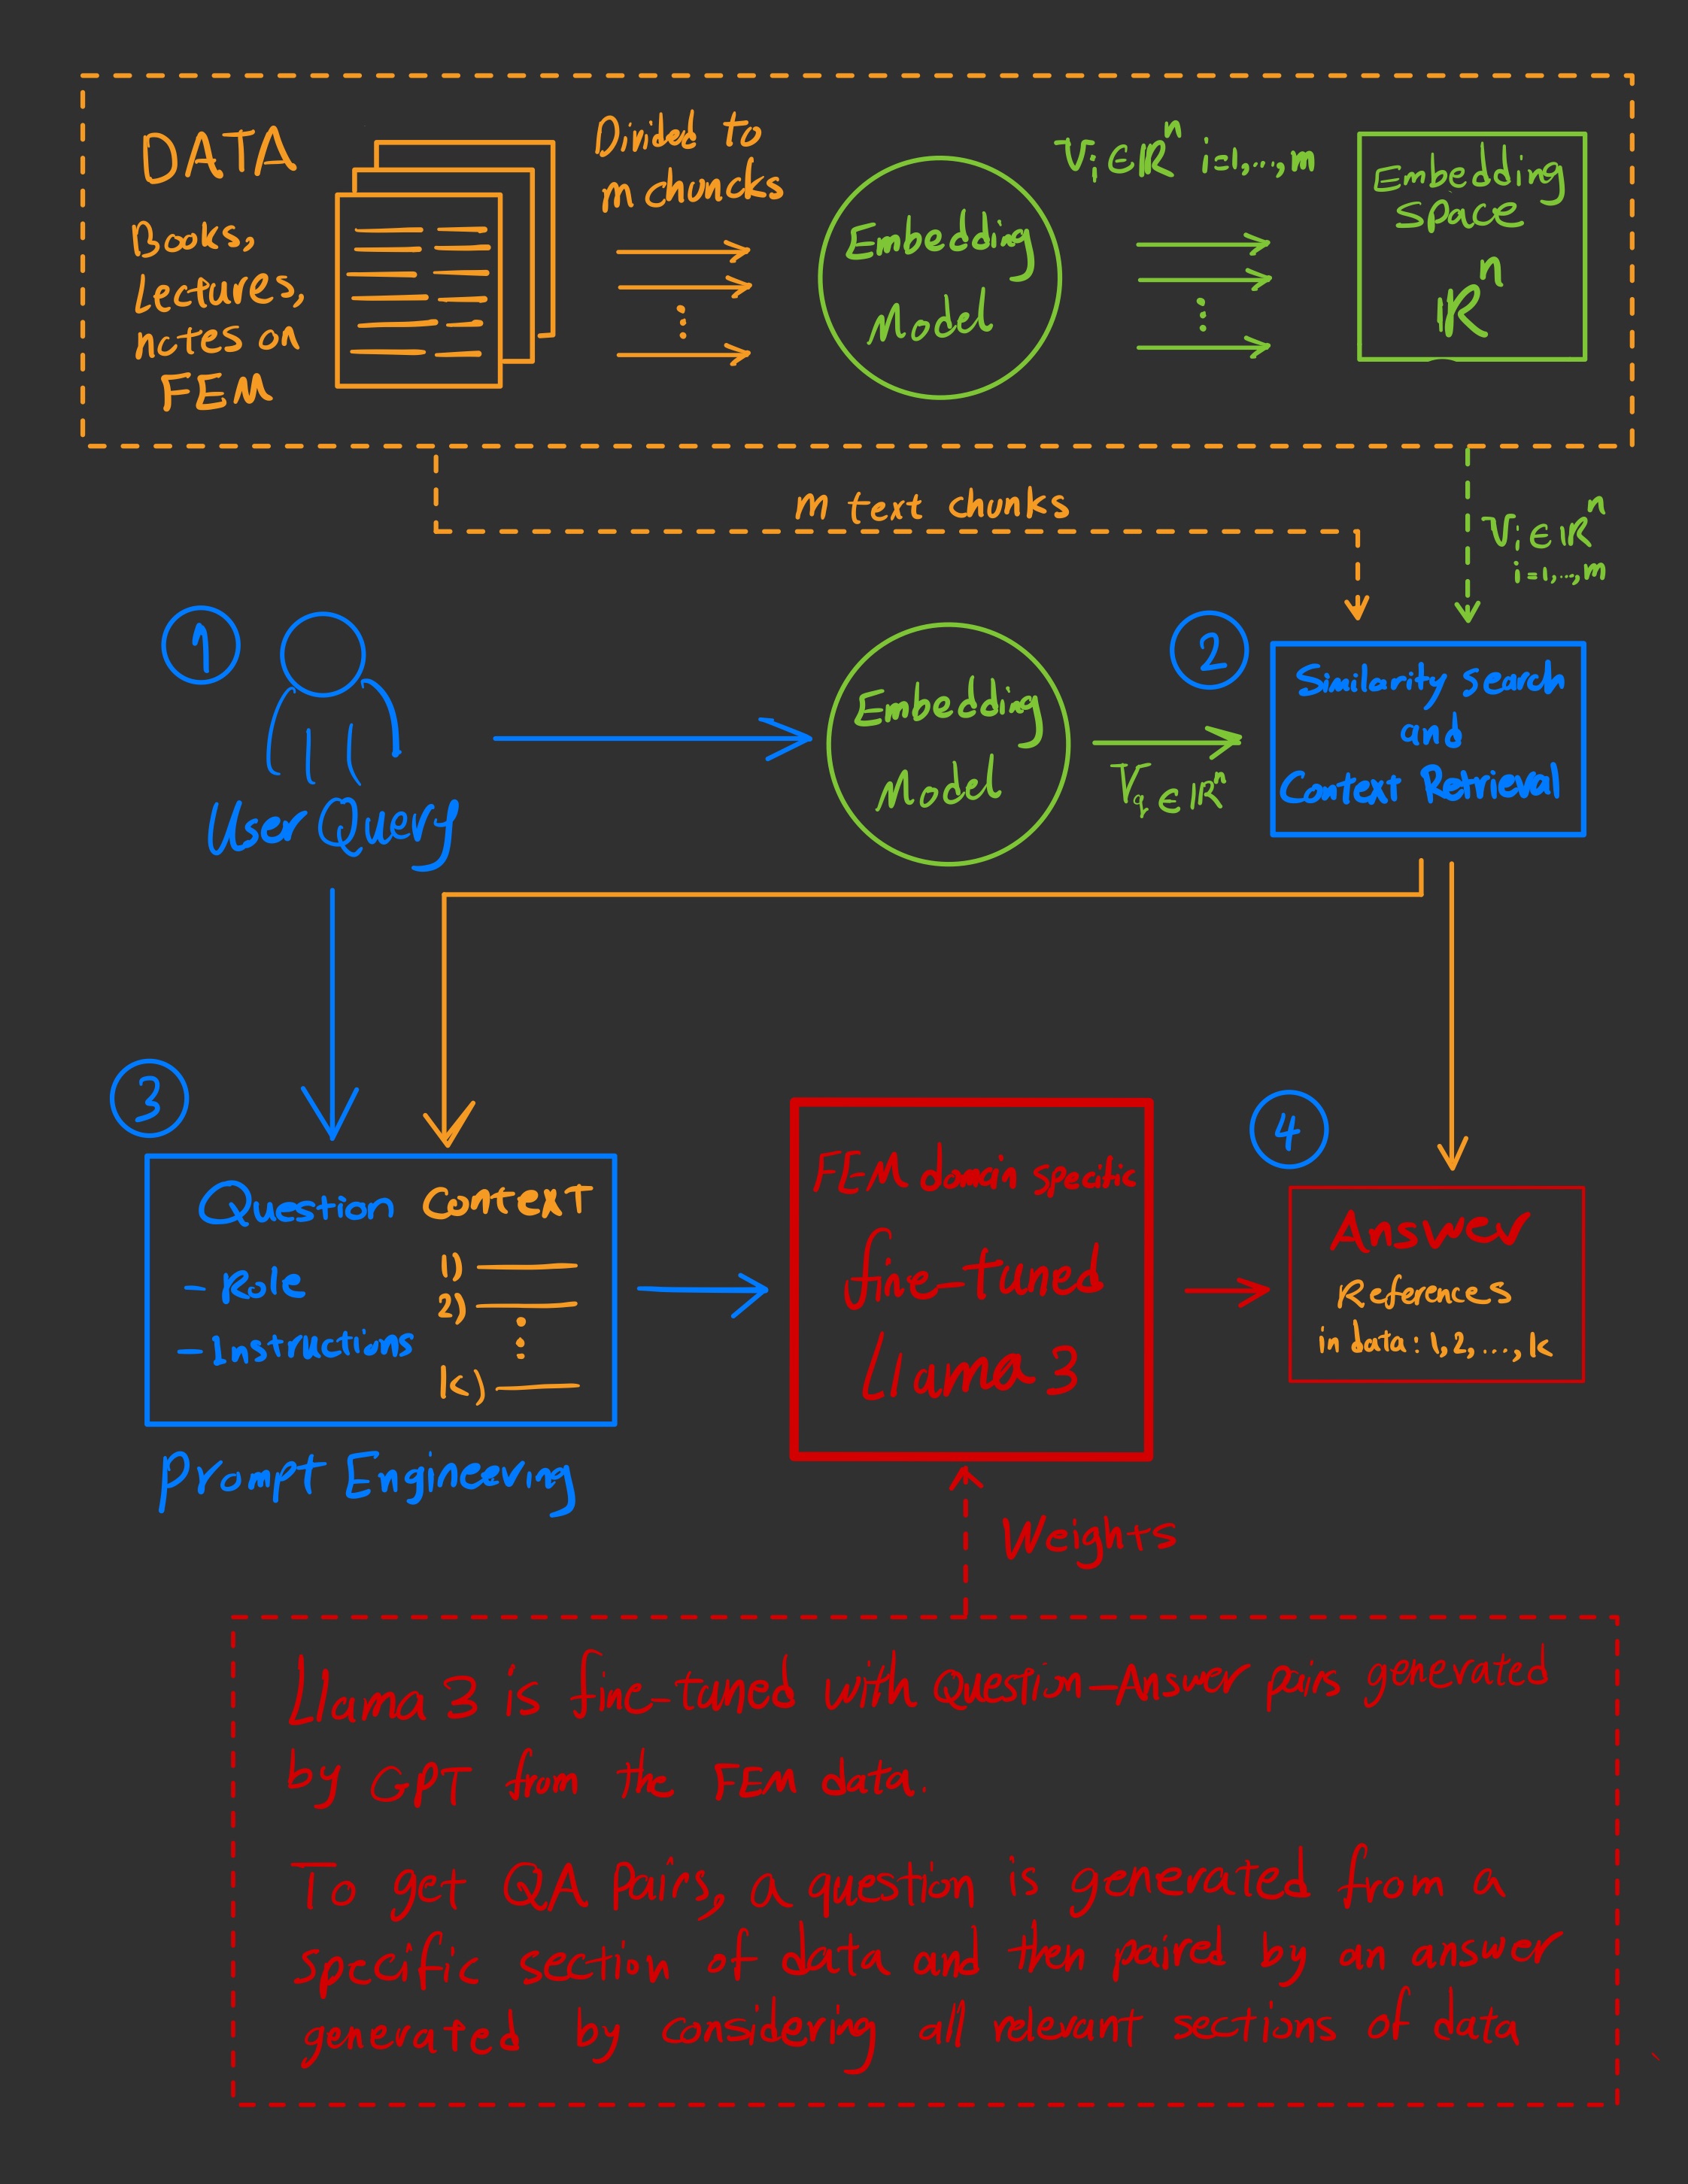 DATA
Books,
Lectures,
notes on
FEM
Divided to
m chuncks
Embedding
Model
Vi ∈ ℝⁿ i=1,...,m
Embedding
space
ℝⁿ
m text chunks
Vi ∈ ℝⁿ
i=1,...,m
1
User Query
Embedding
Model
Vq ∈ ℝⁿ
2
Similarity Search
and
Context Retrieval
3
Question Context
- Role
- Instructions
1)
2)
k)
Prompt Engineering
FEM domain specific
fine-tuned
Llama 3
4
Answer
References
in data: 1,2,...,k
Weights
Llama 3 is fine-tuned with Question-Answer pairs generated
by GPT from the FEM data.
To get QA Pairs, a question is generated from a
specific section of data and then paired by an answer
generated by considering all relevant sections of data